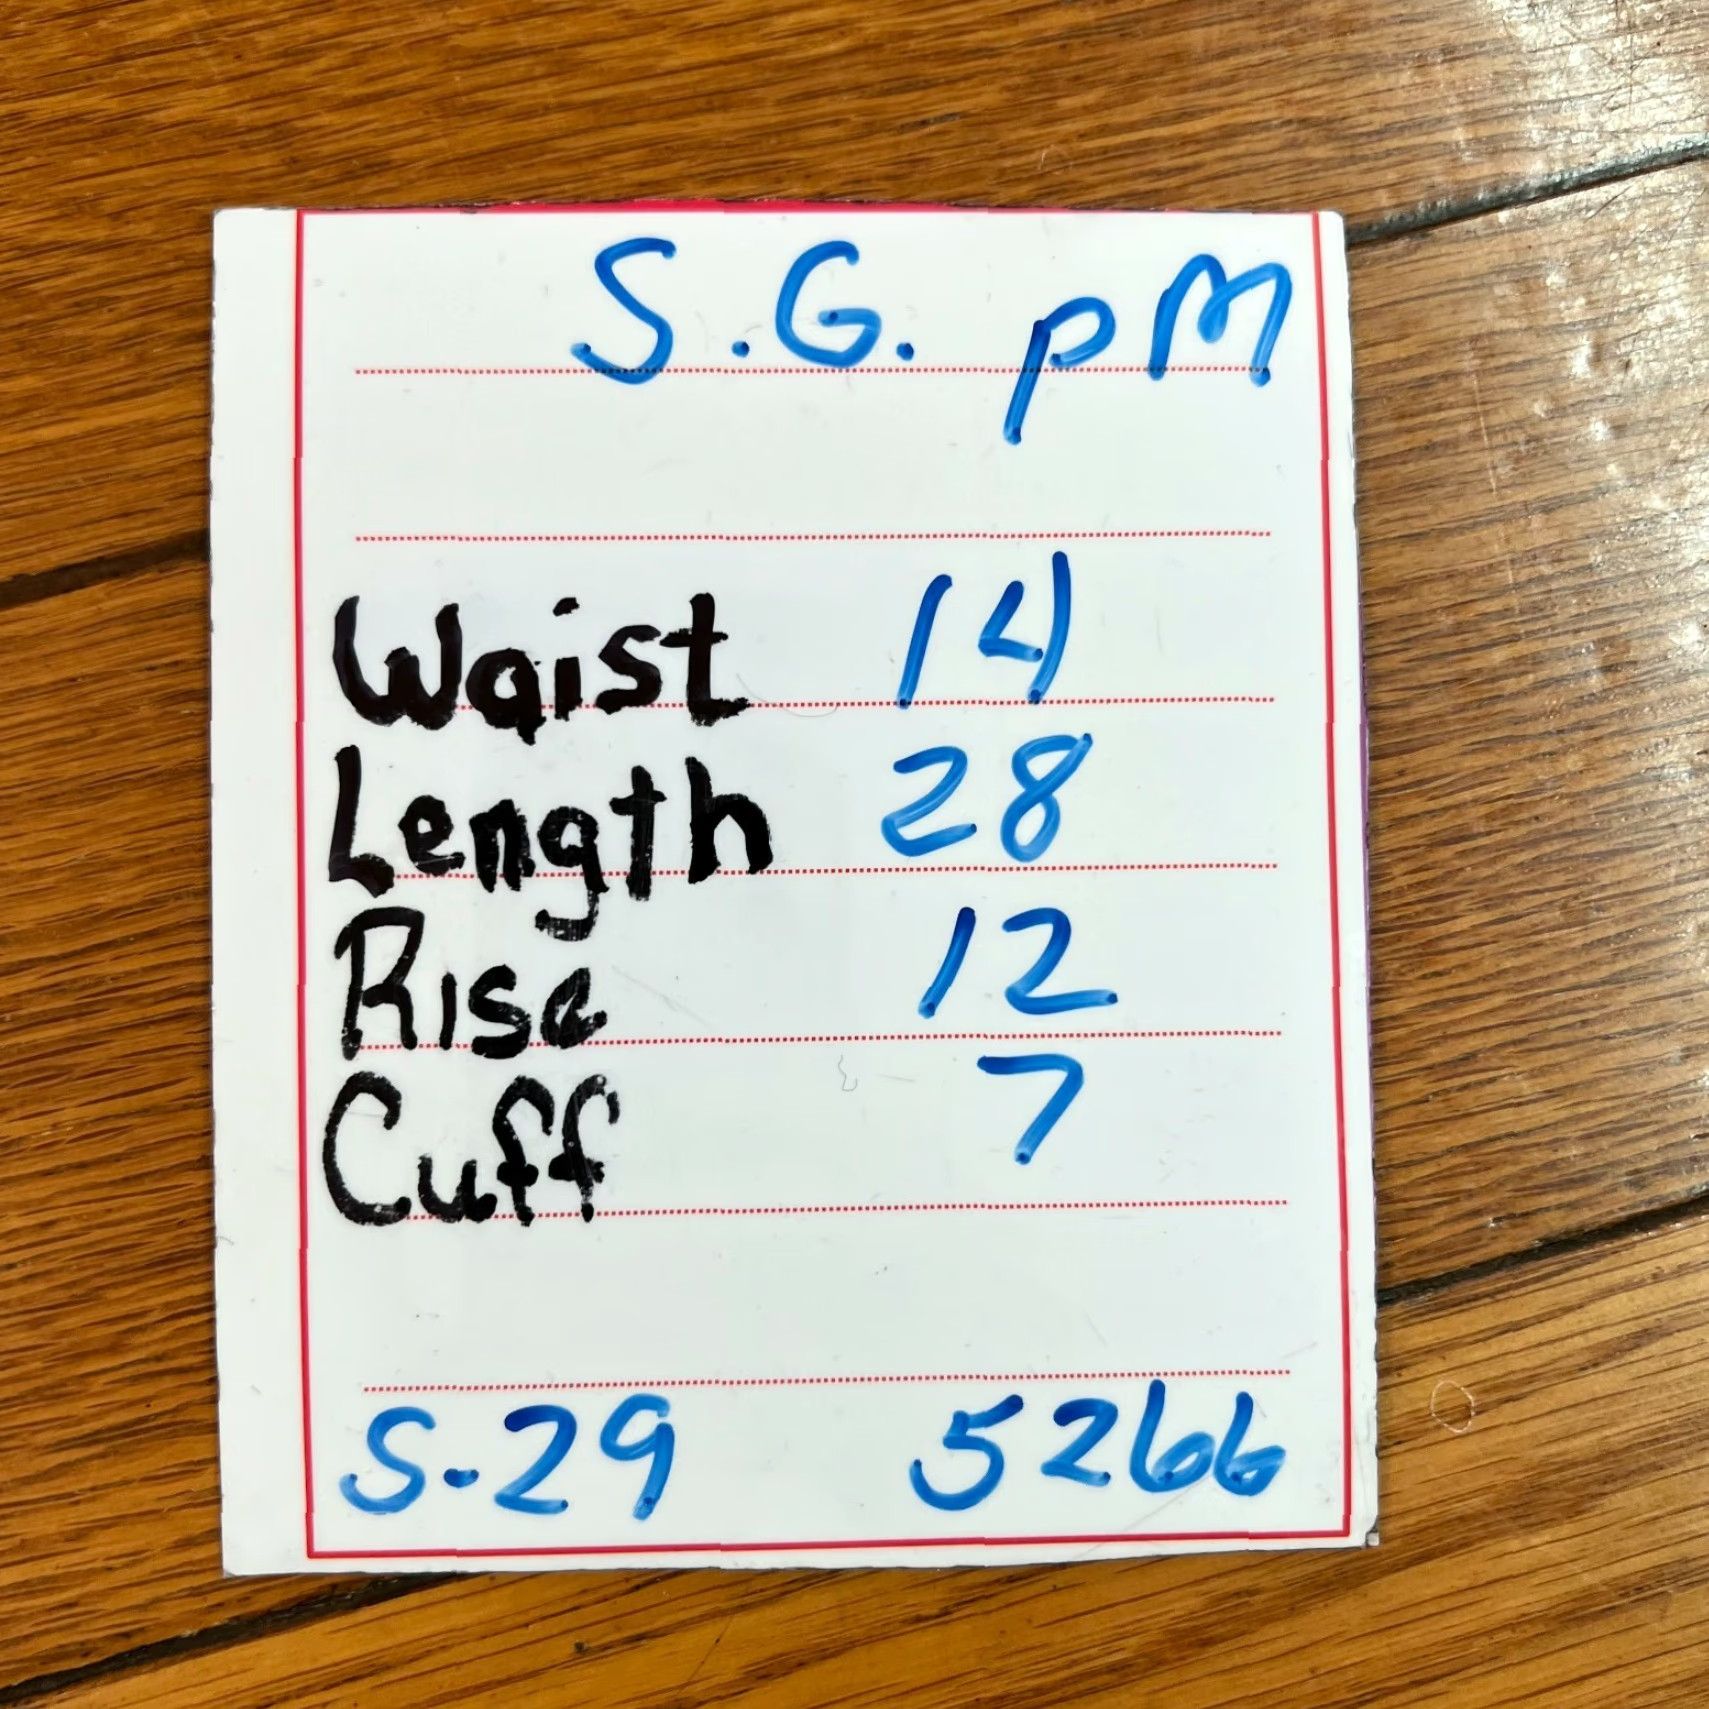 S.G. pM
Waist 14
Length 28
Rise 12
Cuff 7
S-29 5266